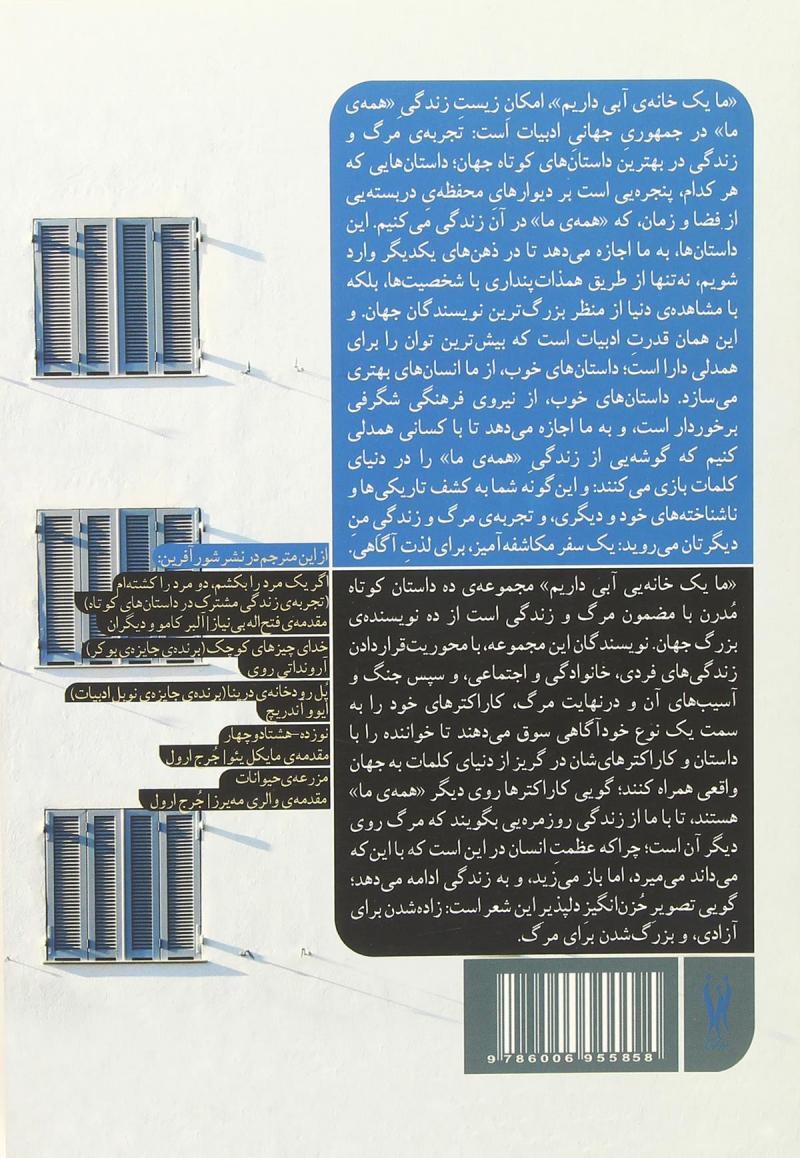 «ما یک خانه‌ی آبی داریم»، امکانِ زیستِ زندگیِ «همه‌ی
ما» در جمهوریِ جهانیِ ادبیات است: تجربه‌ی مرگ و
زندگی در بهترین داستان‌های کوتاه جهان؛ داستان‌هایی که
هر کدام، پنجره‌یی است بر دیوارهای محفظه‌یِ دربسته‌یی
از فضا و زمان، که «همه‌ی ما» در آن زندگی می‌کنیم. این
داستان‌ها، به ما اجازه می‌دهد تا در ذهن‌های یکدیگر وارد
شویم، نه‌تنها از طریق همذات‌پنداری با شخصیت‌ها، بلکه
با مشاهده‌ی دنیا از منظر بزرگ‌ترین نویسندگان جهان. و
این همان قدرتِ ادبیات است که بیش‌ترین توان را برای
همدلی دارا است؛ داستان‌های خوب، از ما انسان‌های بهتری
می‌سازد. داستان‌های خوب، از نیروی فرهنگی شگرفی
برخوردار است، و به ما اجازه می‌دهد تا با کسانی همدلی
کنیم که گوشه‌یی از زندگیِ «همه‌ی ما» را در دنیای
کلمات بازی می‌کنند: و این‌گونه شما به کشف تاریکی‌ها و
ناشناخته‌های خود و دیگری، و تجربه‌ی مرگ و زندگیِ منِ
دیگرتان می‌روید: یک سفر مکاشفه‌آمیز، برای لذتِ آگاهی.
«ما یک خانه‌یی آبی داریم» مجموعه‌ی ده داستان کوتاه
مُدرن با مضمون مرگ و زندگی است از ده نویسنده‌ی
بزرگ جهان. نویسندگان این مجموعه، با محوریت‌قراردادن
زندگی‌های فردی، خانوادگی و اجتماعی، و سپس جنگ و
آسیب‌های آن و درنهایت مرگ، کاراکترهای خود را به
سمت یک نوع خودآگاهی سوق می‌دهند تا خواننده را با
داستان و کاراکترهای‌شان در گریز از دنیای کلمات به جهان
واقعی همراه کنند؛ گویی کاراکترها روی دیگر «همه‌ی ما»
هستند، تا با ما از زندگی روزمره‌یی بگویند که مرگ روی
دیگر آن است؛ چراکه عظمتِ انسان در این است که با این‌که
می‌داند می‌میرد، اما باز می‌زید، و به زندگی ادامه می‌دهد؛
گویی تصویر حُزن‌انگیزِ دلپذیر این شعر است: زاده‌شدن برای
آزادی، و بزرگ‌شدن برای مرگ.
از این مترجم در نشر شورآفرین:
اگر یک مرد را بکشم، دو مرد را کشته‌ام
(تجربه‌ی زندگی مشترک در داستان‌های کوتاه)
مقدمه‌ی فتح‌اله بی‌نیاز | آلبر کامو و دیگران
خدای چیزهای کوچک (برنده‌ی جایزه‌ی بوکر)
آرونداتی روی
پل رودخانه‌ی درینا (برنده‌ی جایزه‌ی نوبل ادبیات)
ایوو آندریچ
نوزده-هشتادوچهار
مقدمه‌ی مایکل یئو | جُرج ارول
مزرعه‌ی حیوانات
مقدمه‌ی والری مه‌یرز | جُرج ارول
9 786006 955858